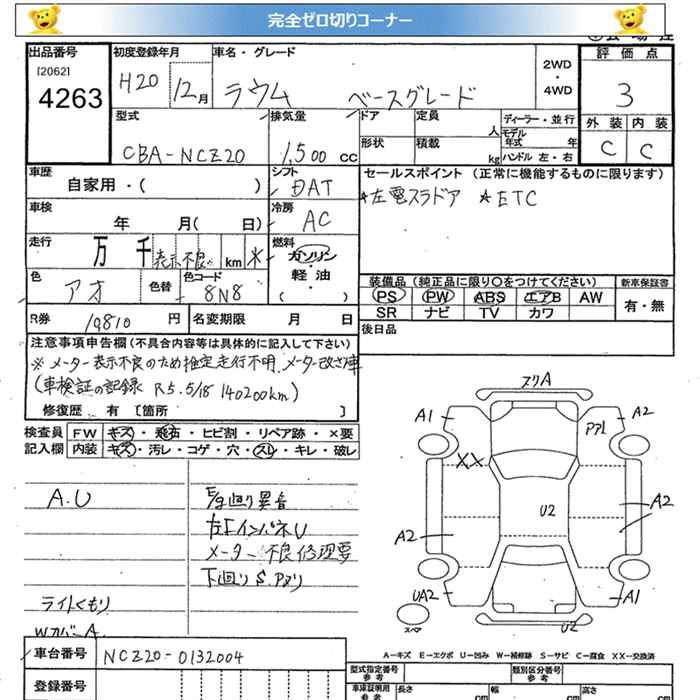 完全ゼロ切りコーナー
出品番号 初度登録年月 車名・グレード 評価点
[2062] 4263 H20 12月 ラウム ベースグレード 2WD・4WD 3
型式 排気量 ドア 定員 人 ディーラー・並行 外装 内装
CBA-NCZ20 1,500 cc 形状 積載 kg モデル年式 年 ハンドル 左・右 C C
車歴 シフト セールスポイント (正常に機能するものに限ります)
自家用・( ) DAT ★左電スラドア ★ETC
車検 冷房
年 月( 日) AC
走行 燃料
万 千 表示不良 km ※ ガソリン・軽・油 ( )
色 色替 色コード 装備品 (純正品に限り○をつけてください) 新車保証書
アオ 8N8 PS PW ABS エアB AW 有・無
SR ナビ TV カワ
R券 10810 円 名変期限 月 日 後日品
注意事項申告欄 (不具合内容等は具体的に記入して下さい)
※メーター表示不良のため推定走行不明、メーター改ざ車
(車検証の記録 R5.5/18 140200km)
修復歴 有 [箇所 ]
検査員記入欄 FW キズ・飛石・ヒビ割・リペア跡・×要
内装 キズ・汚レ・コゲ・穴・スレ・キレ・破レ
A.U
F/g廻り異音
左右インパネU
メーター不良修理要
下廻りS.アリ
ライトくもり
WカバーA
スリA
A1 A2
PP1
XX
U2
A2 A2
UA2 A1
スペア U2
A-キズ E-エクボ U-凹み W-補修跡 S-サビ C-腐食 XX-交換済
車台番号 NCZ20-0132004
登録番号
型式指定番号 参考 類別区分番号 参考
車庫証明用 参考 長さ cm 幅 cm 高さ cm